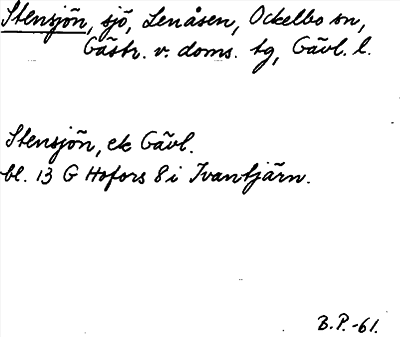 Stensjön, sjö, Lenåsen, Ockelbo sn,
Gästr. v. doms. tg, Gävl. l.
Stensjön, ek Gävl.
bl. 13 G Hofors 8 i Ivantjärn.
B.P.-61.